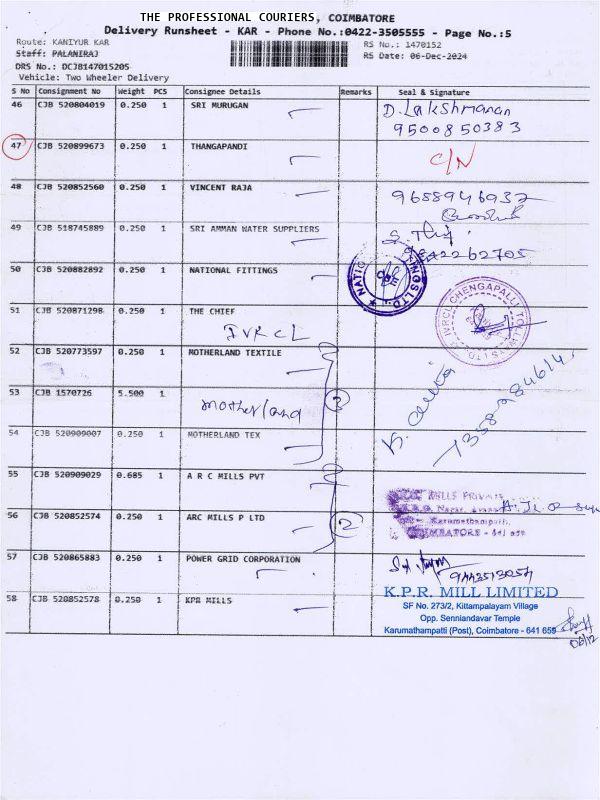 THE PROFESSIONAL COURIERS, COIMBATORE
Delivery Runsheet - KAR - Phone No.:0422-3505555 - Page No.:5
Route: KANIYUR KAR
RS No.: 1470152
Staff: PALANIRAJ
RS Date: 06-Dec-2024
DRS No.: DCJB147015205
Vehicle: Two Wheeler Delivery
S No Consignment No Weight PCS Consignee Details Remarks Seal & Signature
46 CJB 520804019 0.250 1 SRI MURUGAN D. Lakshmanan
9500850383
47 CJB 520899673 0.250 1 THANGAPANDI C/N
48 CJB 520852560 0.250 1 VINCENT RAJA 9658946937
49 CJB 518745889 0.250 1 SRI AMMAN WATER SUPPLIERS
9842262705
50 CJB 520882892 0.250 1 NATIONAL FITTINGS
51 CJB 520871298 0.250 1 THE CHIEF
IVRCL CHENGAPALLI TOLLWAYS LTD
IVRCL
52 CJB 520773597 0.250 1 MOTHERLAND TEXTILE
53 CJB 1570726 5.500 1 motherland
54 CJB 520909007 0.250 1 MOTHERLAND TEX
55 CJB 520909029 0.685 1 A R C MILLS PVT
MILLS PRIVATE
56 CJB 520852574 0.250 1 ARC MILLS P LTD 2
COIMBATORE
57 CJB 520865883 0.250 1 POWER GRID CORPORATION
9443513054
58 CJB 520852578 0.250 1 KPR MILLS K.P.R. MILL LIMITED
SF No. 273/2, Kittampalayam Village
Opp. Senniandavar Temple
Karumathampatti (Post), Coimbatore - 641 659
06/12